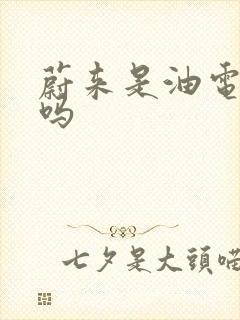 蔚来是油電
吗
七夕是大頭喵